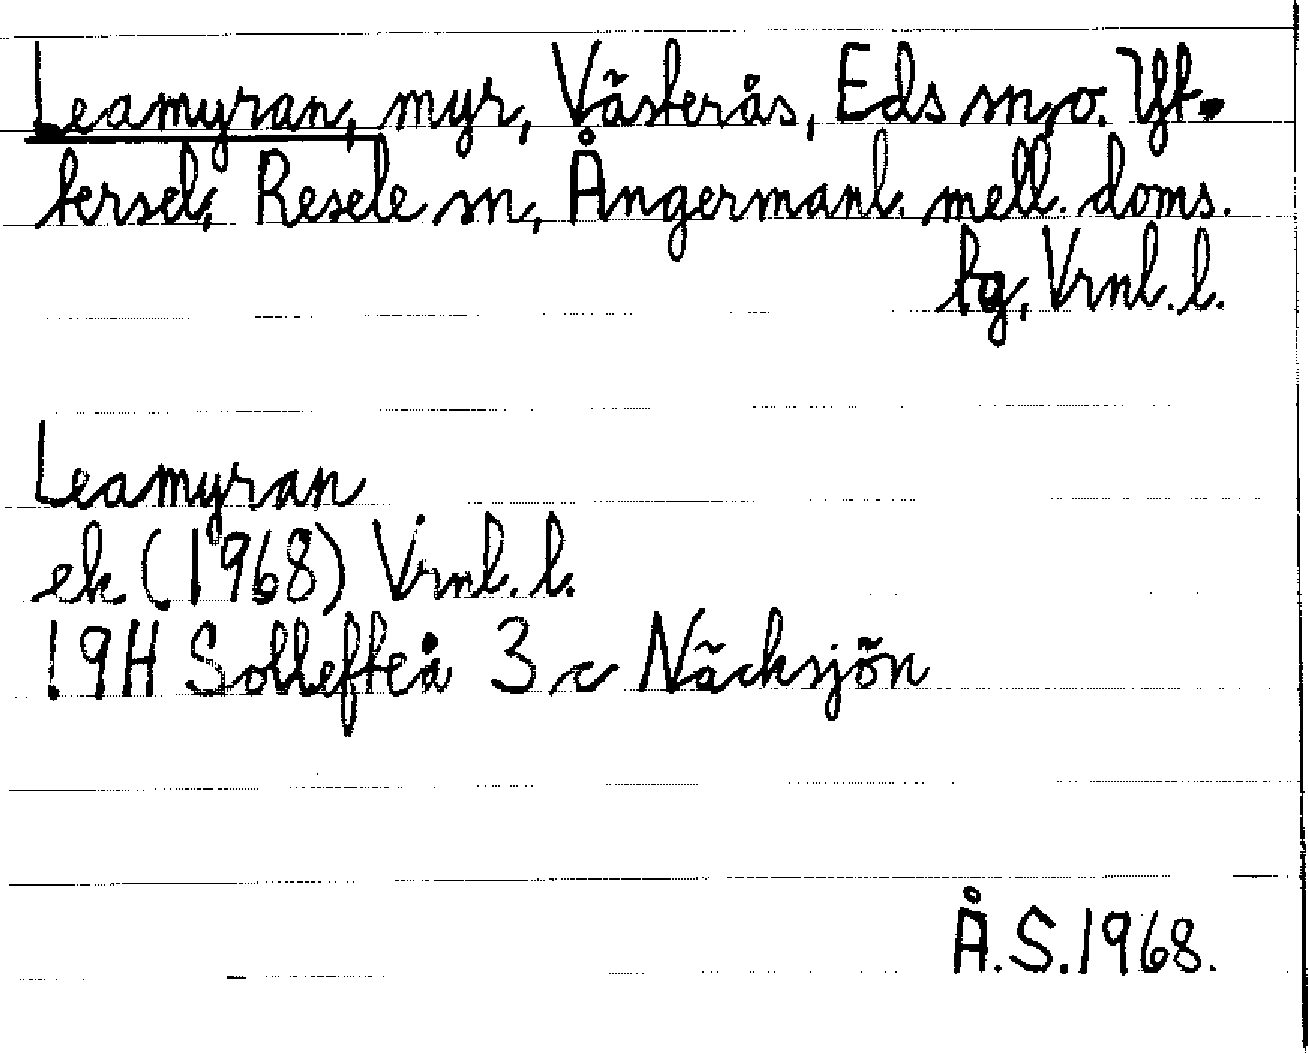 Leamyran, myr, Västerås, Eds sn, o. Yt-
tersel, Resele sn, Ångermanl. mell. doms.
tg, Vrnl. l.
Leamyran
ek (1968) Vrnl. l.
19H Sollefteå 3 c Näcksjön
Å.S. 1968.